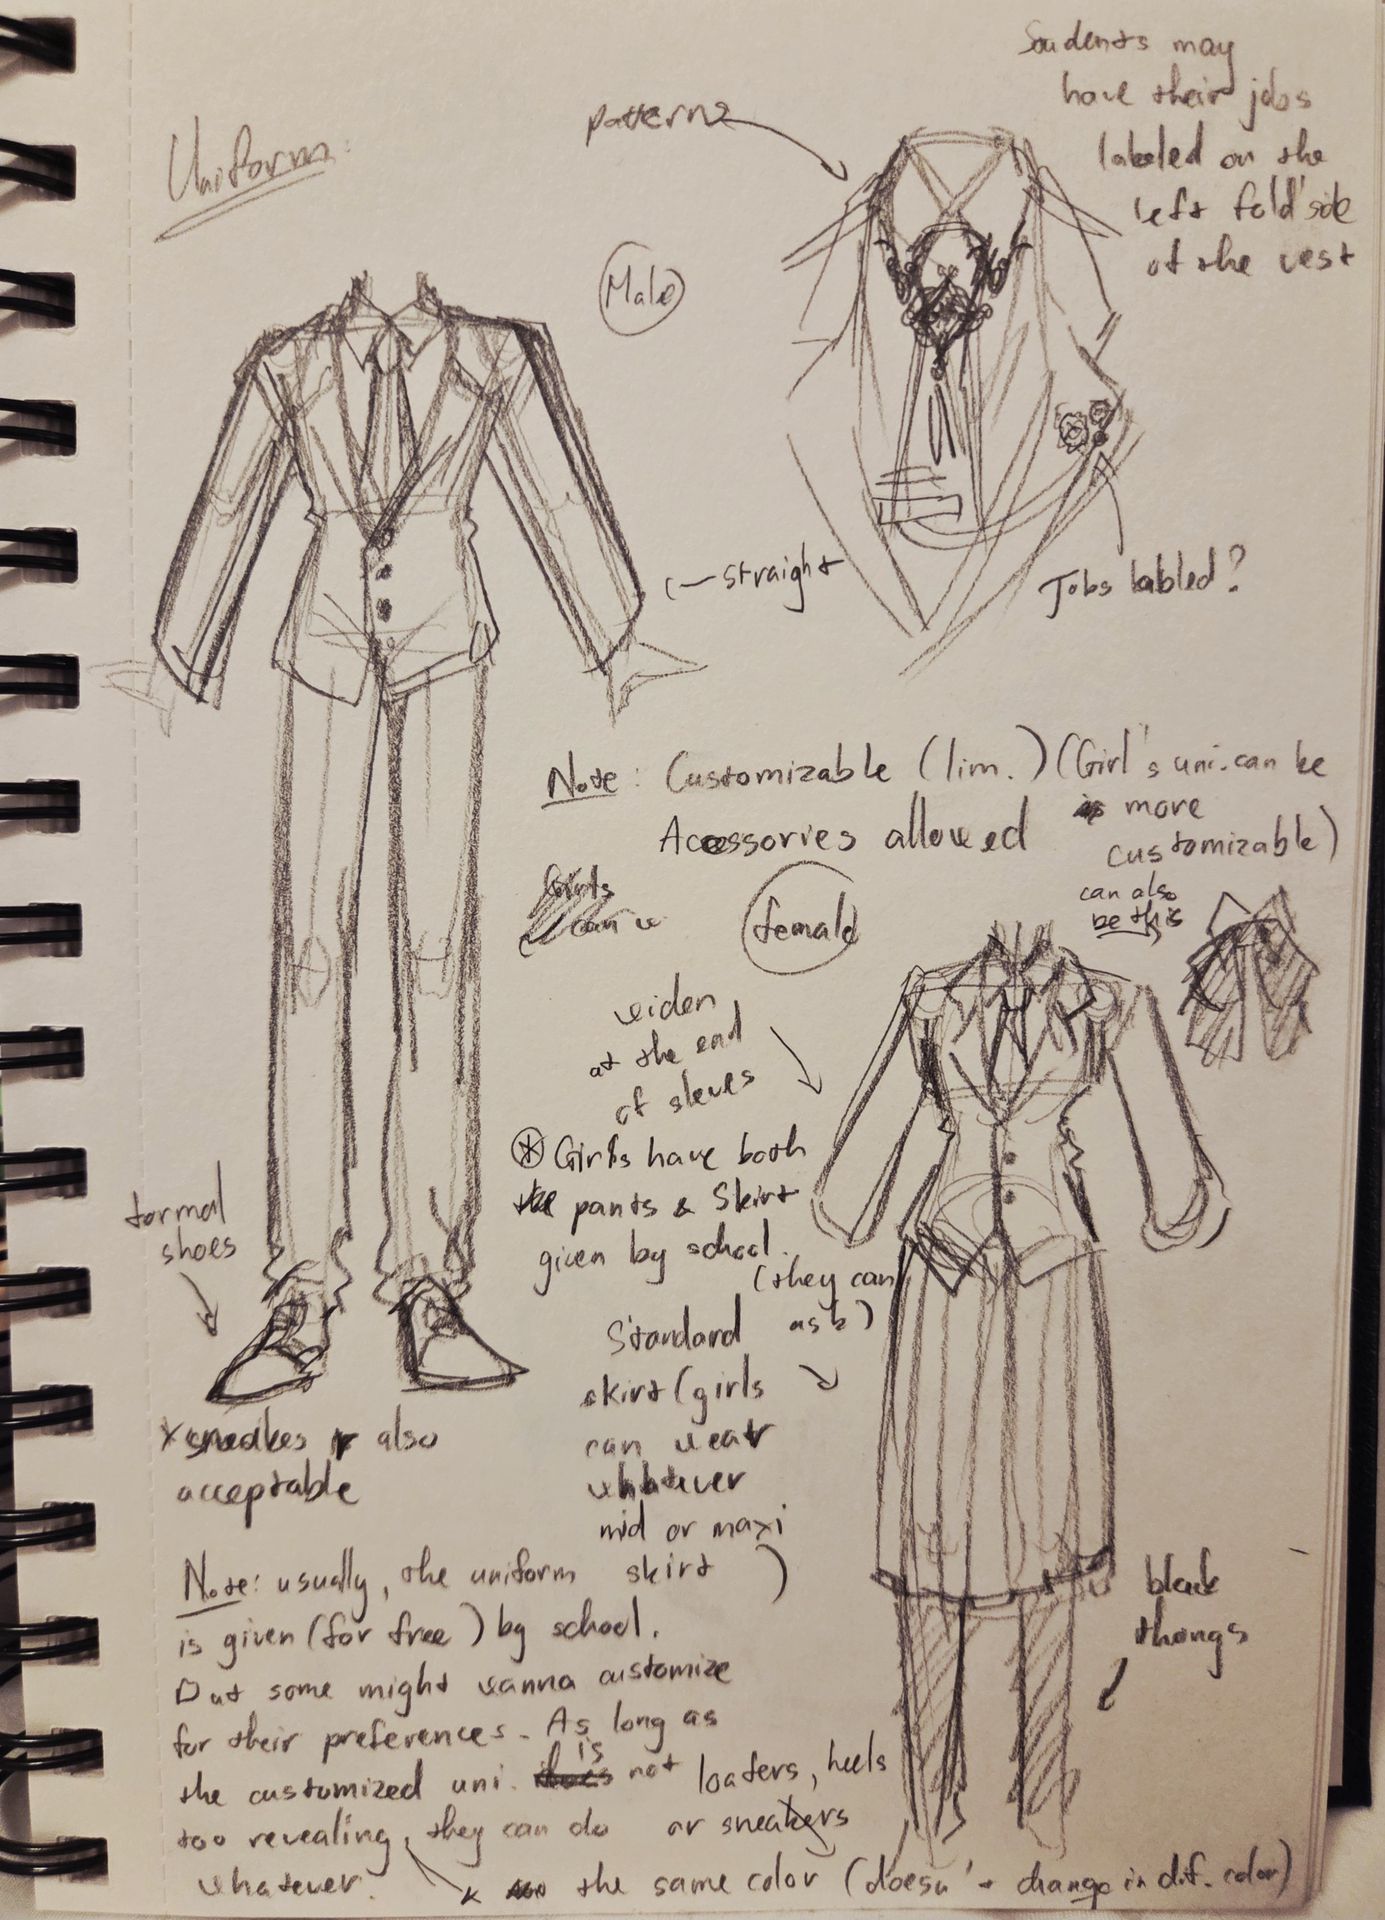 Uniform:
patterns
Students may
have their jobs
labeled on the
left fold side
of the vest
Male
straight
Jobs labled?
Note: Customizable (lim.) (Girl's uni. can be
more
customizable)
Accessories allowed
can also
be this
can
female
widen
at the end
of sleves
* Girls have both
the pants & skirt
given by school.
(they can
ask)
Standard
skirt (girls
can wear
whatever
mid or maxi
skirt )
formal
shoes
also
acceptable
black
thongs
Note: usually, the uniform
is given (for free) by school.
But some might wanna customize
for their preferences. As long as
the customized uni. does is not
too revealing, they can do
whatever.
loafers, heels
or sneakers
x the same color (doesn't change in dif. color)